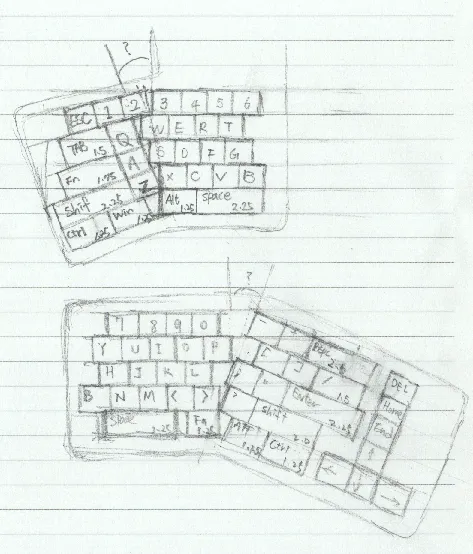 ?
ESC 1 2 3 4 5 6
TAB 1.5 Q W E R T
Fn 1.75 A S D F G
Shift 2.25 Z X C V B
Ctrl 1.25 Win 1.25 Alt 1.25 Space 2.25
?
7 8 9 0 - =
Y U I O P [ ] / 1.5 DEL
H J K L ; " Enter 2.25 Home
B N M < > ? Shift 2.0 End ↑
Space 2.25 Fn 1.25 Alt 1.25 Ctrl 1.25 ← ↓ →